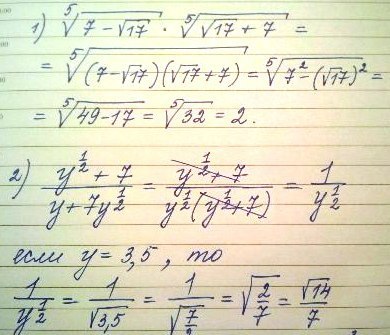 1) ⁵√(7 − √17) · ⁵√(√17 + 7) =
= ⁵√((7 − √17)(√17 + 7)) = ⁵√(7² − (√17)²) =
= ⁵√(49 − 17) = ⁵√32 = 2.
2) (y^(1/2) + 7)/(y + 7y^(1/2)) = (y^(1/2) + 7)/(y^(1/2)(y^(1/2) + 7)) = 1/y^(1/2)
если y = 3,5, то
1/y^(1/2) = 1/√3,5 = 1/√(7/2) = √(2/7) = √14/7